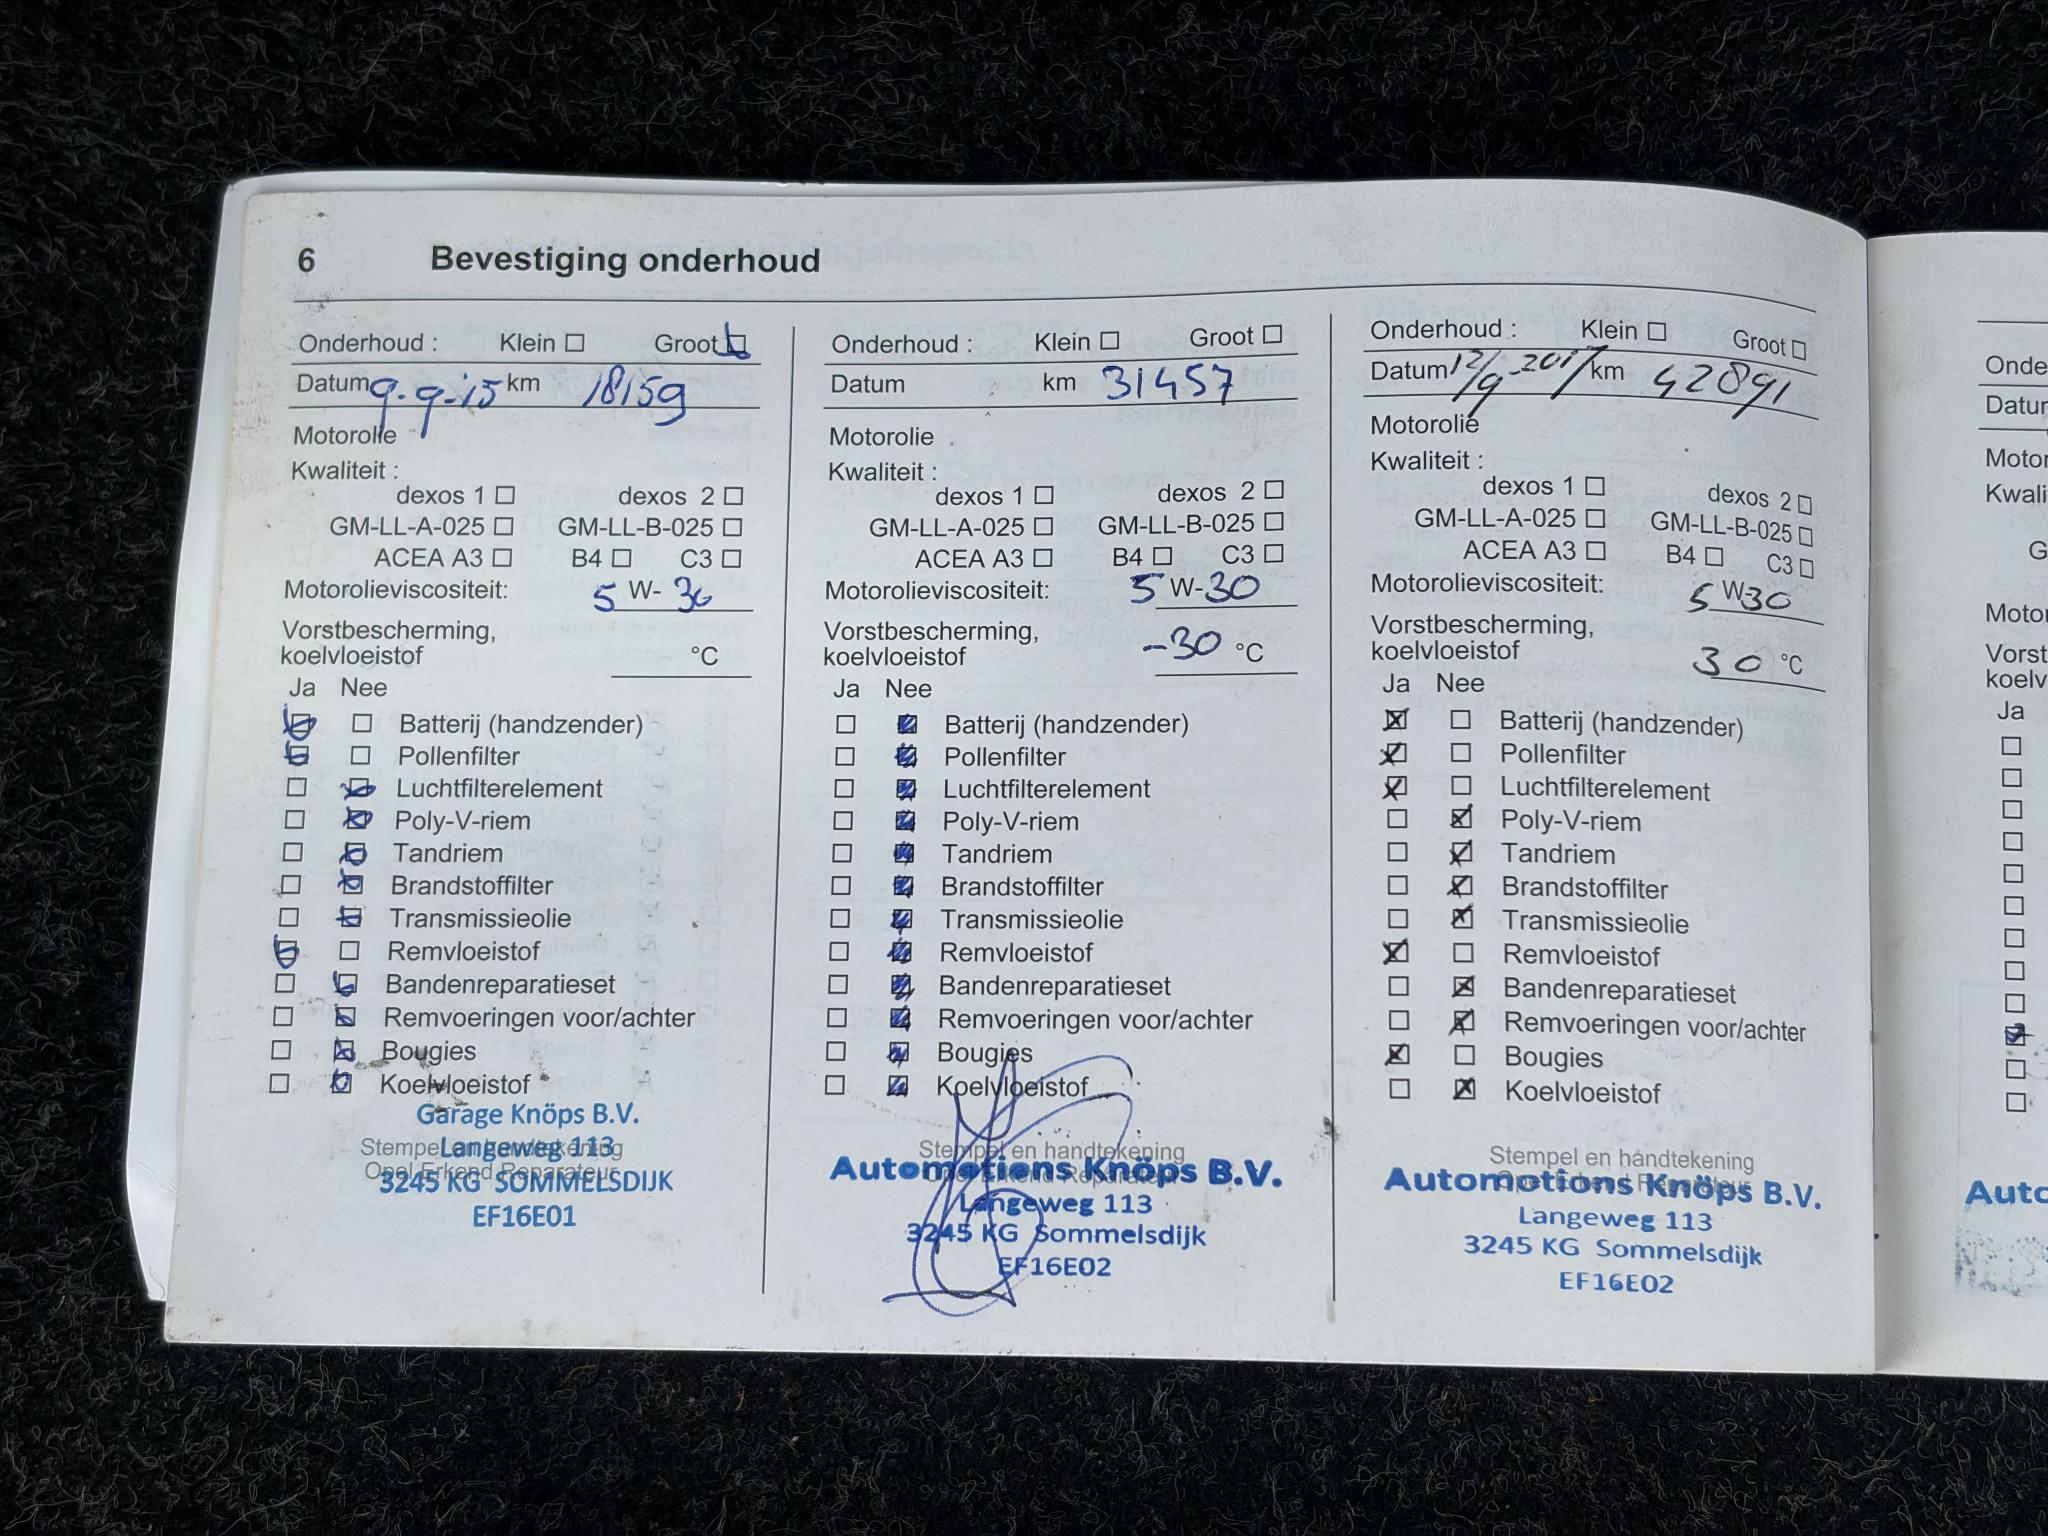 6 Bevestiging onderhoud
Onderhoud : Klein Groot
Datum 9-9-15 km 18159
Motorolie
Kwaliteit :
dexos 1 dexos 2
GM-LL-A-025 GM-LL-B-025
ACEA A3 B4 C3
Motorolieviscositeit: 5 W- 30
Vorstbescherming,
koelvloeistof °C
Ja Nee
Batterij (handzender)
Pollenfilter
Luchtfilterelement
Poly-V-riem
Tandriem
Brandstoffilter
Transmissieolie
Remvloeistof
Bandenreparatieset
Remvoeringen voor/achter
Bougies
Koelvloeistof
Stempel en handtekening
Opel Erkend Reparateur
Garage Knöps B.V.
Langeweg 113
3245 KG SOMMELSDIJK
EF16E01
Onderhoud : Klein Groot
Datum km 31457
Motorolie
Kwaliteit :
dexos 1 dexos 2
GM-LL-A-025 GM-LL-B-025
ACEA A3 B4 C3
Motorolieviscositeit: 5 W-30
Vorstbescherming,
koelvloeistof -30 °C
Ja Nee
Batterij (handzender)
Pollenfilter
Luchtfilterelement
Poly-V-riem
Tandriem
Brandstoffilter
Transmissieolie
Remvloeistof
Bandenreparatieset
Remvoeringen voor/achter
Bougies
Koelvloeistof
Stempel en handtekening
Opel Erkend Reparateur
Automotions Knöps B.V.
Langeweg 113
3245 KG Sommelsdijk
EF16E02
Onderhoud : Klein Groot
Datum 12/9-2017 km 42891
Motorolie
Kwaliteit :
dexos 1 dexos 2
GM-LL-A-025 GM-LL-B-025
ACEA A3 B4 C3
Motorolieviscositeit: 5 W30
Vorstbescherming,
koelvloeistof 30 °C
Ja Nee
Batterij (handzender)
Pollenfilter
Luchtfilterelement
Poly-V-riem
Tandriem
Brandstoffilter
Transmissieolie
Remvloeistof
Bandenreparatieset
Remvoeringen voor/achter
Bougies
Koelvloeistof
Stempel en handtekening
Opel Erkend Reparateur
Automotions Knöps B.V.
Langeweg 113
3245 KG Sommelsdijk
EF16E02
Onde
Datu
Motor
Kwali
G
Motor
Vorst
koelv
Ja
Auto